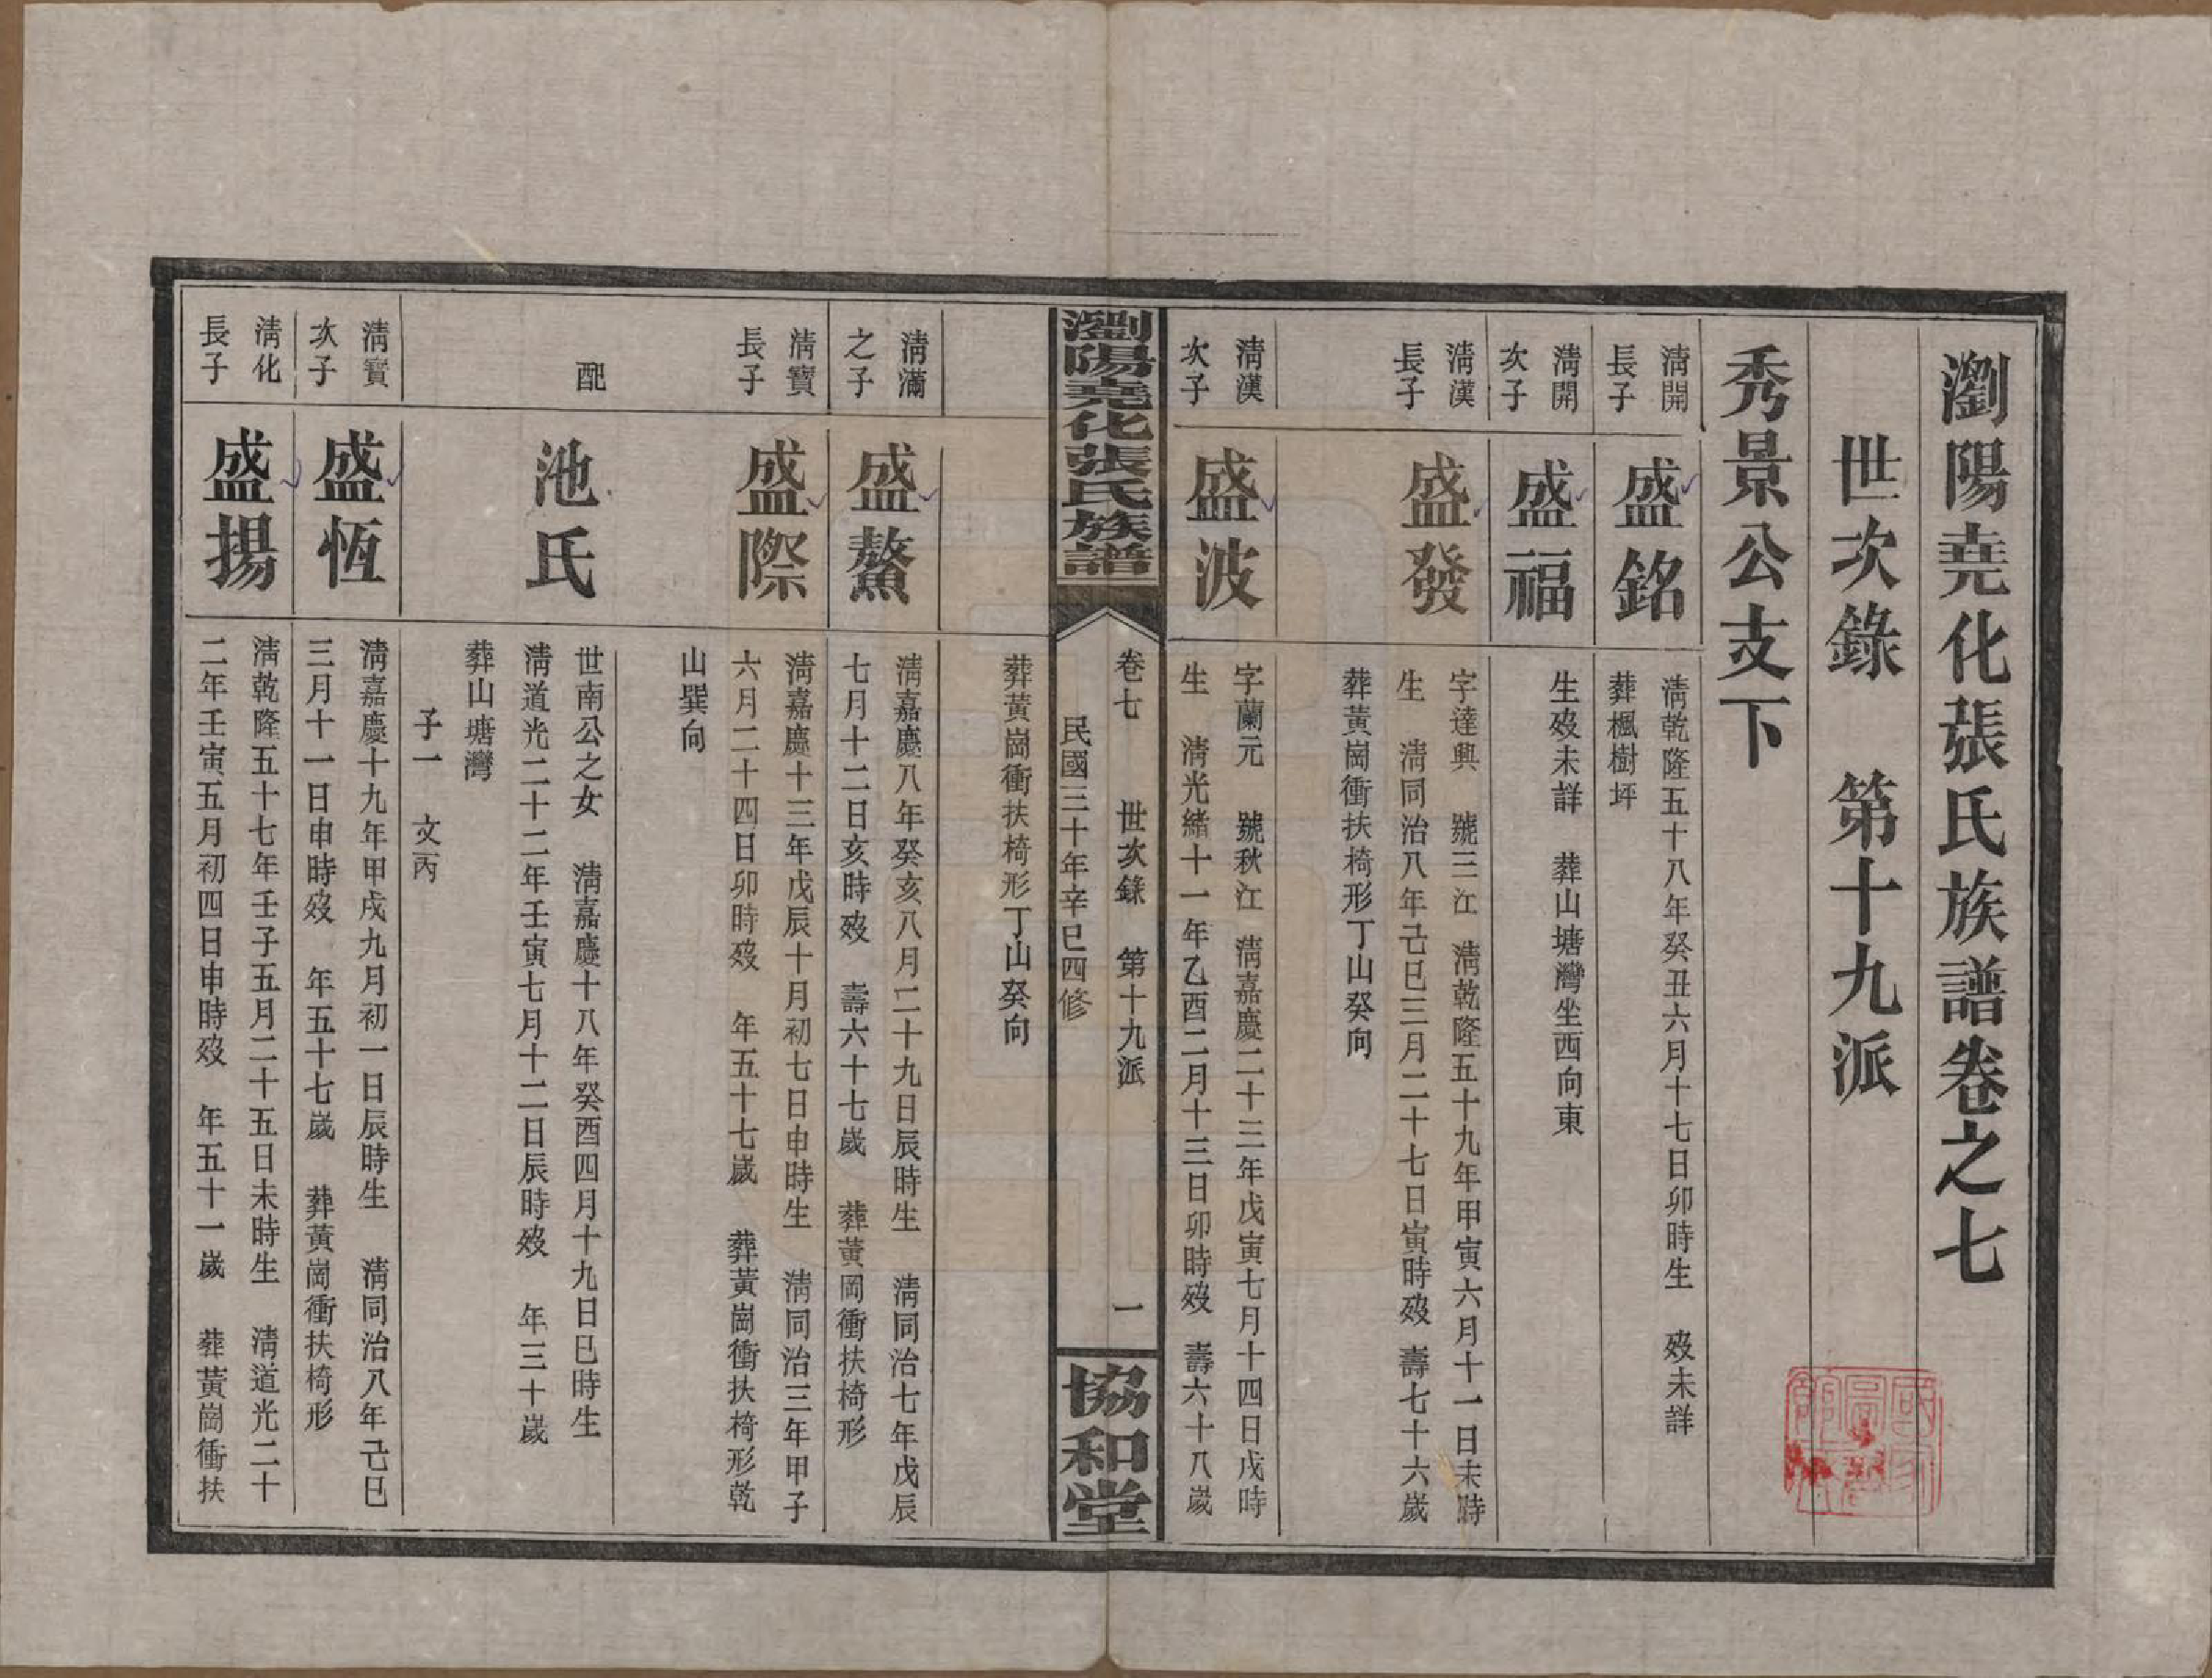 瀏陽堯化張氏族譜卷之七
世次錄　第十九派
秀景公支下
淸開
長子
盛銘
淸乾隆五十八年癸丑六月十七日卯時生　歿未詳
葬楓樹坪
淸開
次子
盛福
生歿未詳　葬山塘灣坐西向東
淸漢
長子
盛發
字達興　號三江　淸乾隆五十九年甲寅六月十一日未時
生　淸同治八年己巳三月二十七日寅時歿　壽七十六歲
葬黃崗衝扶椅形丁山癸向
淸漢
次子
盛波
字蘭元　號秋江　淸嘉慶二十三年戊寅七月十四日戌時
生　淸光緒十一年乙酉二月十三日卯時歿　壽六十八歲
瀏陽堯化張氏族譜
卷七　世次錄　第十九派　一
民國三十年辛巳四修
協和堂
葬黃崗衝扶椅形丁山癸向
淸滿
之子
盛鰲
淸嘉慶八年癸亥八月二十九日辰時生　淸同治七年戊辰
七月十二日亥時歿　壽六十七歲　葬黃岡衝扶椅形
淸寶
長子
盛際
淸嘉慶十三年戊辰十月初七日申時生　淸同治三年甲子
六月二十四日卯時歿　年五十七歲　葬黃崗衝扶椅形乾
山巽向
配
池氏
世南公之女　淸嘉慶十八年癸酉四月十九日巳時生
淸道光二十二年壬寅七月十二日辰時歿　年三十歲
葬山塘灣
子一　文丙
淸寶
次子
盛恆
淸嘉慶十九年甲戌九月初一日辰時生　淸同治八年己巳
三月十一日申時歿　年五十七歲　葬黃崗衝扶椅形
淸化
長子
盛揚
淸乾隆五十七年壬子五月二十五日未時生　淸道光二十
二年壬寅五月初四日申時歿　年五十一歲　葬黃崗衝扶